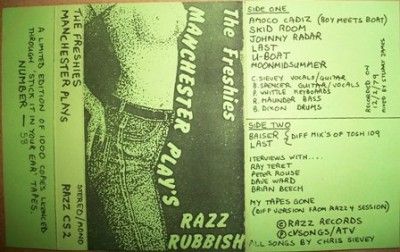 A LIMITED EDITION OF 1000 COPIES LICENCED
THROUGH 'STICK IT IN YOUR EAR' TAPES.
NUMBER — 58
THE FRESHIES
MANCHESTER PLAYS
STEREO/MONO
RAZZ CS2
The Freshies
MANCHESTER PLAYS
RAZZ
RUBBISH
SIDE ONE
AMOCO CADIZ (BOY MEETS BOAT)
SKID ROOM
JOHNNY RADAR
LAST
U-BOAT
MOONMIDSUMMER
C. SIEVEY VOCALS/GUITAR
B. SPENCER GUITAR/VOCALS
P WHITTLE KEYBOARDS
R. MAUNDER BASS
B. DIXON DRUMS
RECORDED ON
12/2/79
MIXED BY STUART JAMES
SIDE TWO
BAISER
LAST
DIFF MIX'S OF TOSH 109
INTERVIEWS WITH....
RAY TERET
PETER ROUSE
DAVE WARD
BRIAN BEECH
MY TAPES GONE
(DIFF VERSION FROM RAZZ 4 SESSION)
Ⓒ RAZZ RECORDS
Ⓟ CVSONGS/ATV
ALL SONGS BY CHRIS SIEVEY